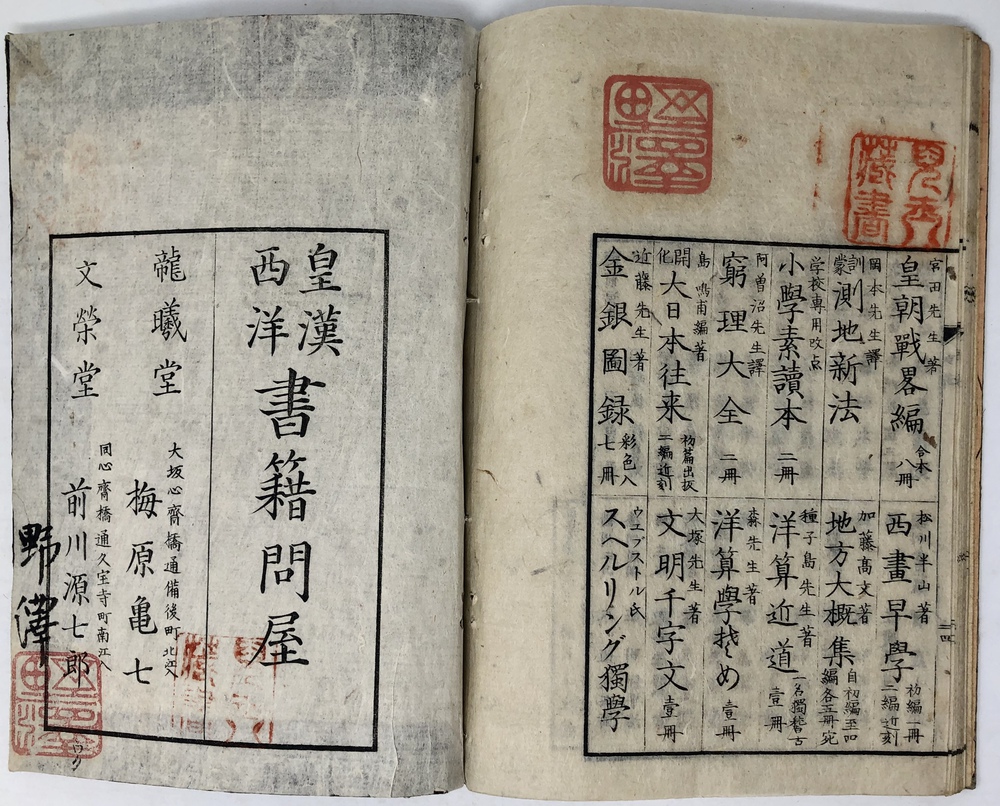 宮田先生著
皇朝戰畧編
合本
八冊
岡本先生譯
訓蒙
測地新法
学校専用改点
小學素讀本
二冊
阿曽沼先生譯
窮理大全
二冊
島鳴甫編著
開化
大日本往来
初篇出板
二編近刻
近藤先生著
金銀圖録
彩色入
七冊
松川半山著
西畫早學
初編一冊
二編近刻
加藤高文著
地方大概集
自初編至四
編各五冊宛
種子島先生著
洋算近道
一名獨稽古
壹冊
森先生著
洋算學そめ
壹冊
大塚先生著
文明千字文
壹冊
ウエブストル氏
スヘルリング獨學
見
藏書
野澤
皇漢
西洋
書籍問屋
龍曦堂
大坂心齋橋通備後町北江入
梅原亀七
文榮堂
同心齋橋通久宝寺町南江入
前川源七郎
野澤